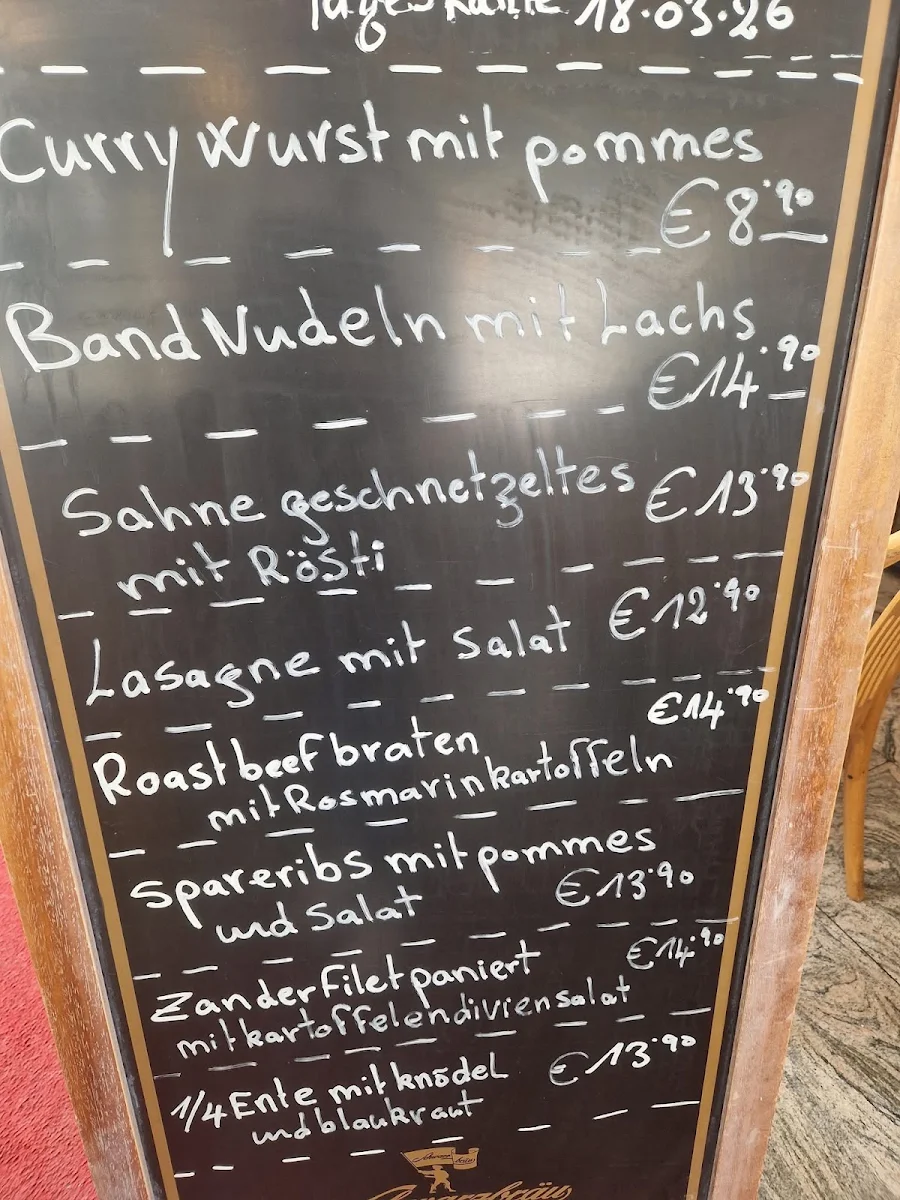 Tageskarte 18.03.26
Curry wurst mit pommes
€ 8.90
Band Nudeln mit Lachs
€ 14.90
Sahne geschnetzeltes € 13.90
mit Rösti
Lasagne mit Salat € 12.90
€ 14.90
Roastbeef braten
mit Rosmarinkartoffeln
Spareribs mit pommes
und Salat € 13.90
€ 14.90
Zander Filet paniert
mit kartoffelendiviensalat
1/4 Ente mit knödel € 13.90
und blaukraut